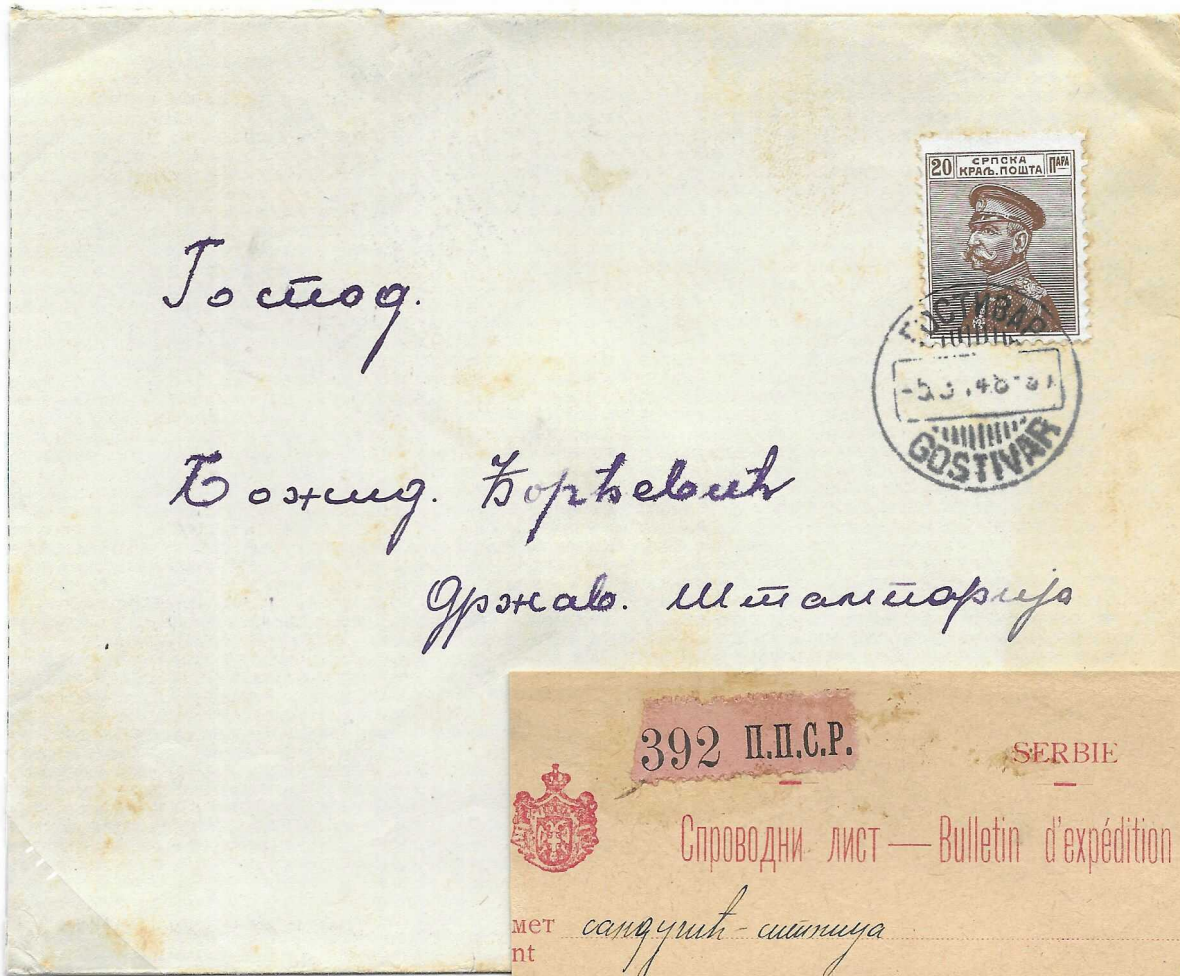 20 СРПСКА КРАЉ. ПОШТА ПАРА
ГОСТИВАР
GOSTIVAR
Господ.
Божид. Ђорђевић
Држав. Штампарија
392 П.П.С.Р.
SERBIE
Спроводни лист — Bulletin d'expédition
мет сандучић -
nt